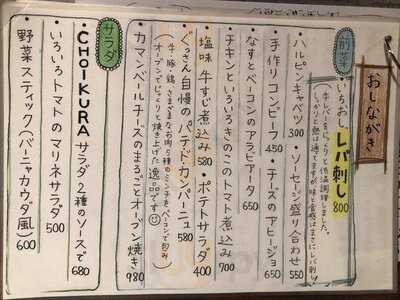 おしながき
前菜
いちおし レバ刺し 800
牛レバーをじっくりと低温調理しました。
しっかりと熱は通ってますが味と食感はまさにレバ刺し!
・ハルピンキャベツ 300
・ソーセージ盛り合わせ 550
・手作りコンビーフ 450
・チーズのアヒージョ 650
・なすとベーコンのアラビアータ 650
・チキンといろいろきのこのトマト煮込み 700
・塩味 牛すじ煮込み 580
・ポテトサラダ 400
・ぐっさん自慢のパテ・ド・カンパーニュ 580
(牛、豚、鶏、さまざまなお肉4種のミンチをベーコンで包み
オーブンでじっくりと焼き上げた逸品です)
・カマンベールチーズのまるごとオーブン焼き 980
サラダ
・CHOIKURAサラダ 2種のソースで 680
・いろいろトマトのマリネサラダ 500
・野菜スティック(バーニャカウダ風) 600